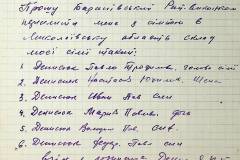 Прошу Баранівський Рай-виконком
переселити мене з сімьею в
Миколаївську область склад
моєї сімї такий:
1. Денисюк Павло Трофимов. голова сімї
2. Денисюк Настасія жена
3. Денисюк Іван Пав син
4. Денисюк Марія Павлів. доч
5. Денисюк Володим Пав. син.
6. Денисюк Федор. Пав син